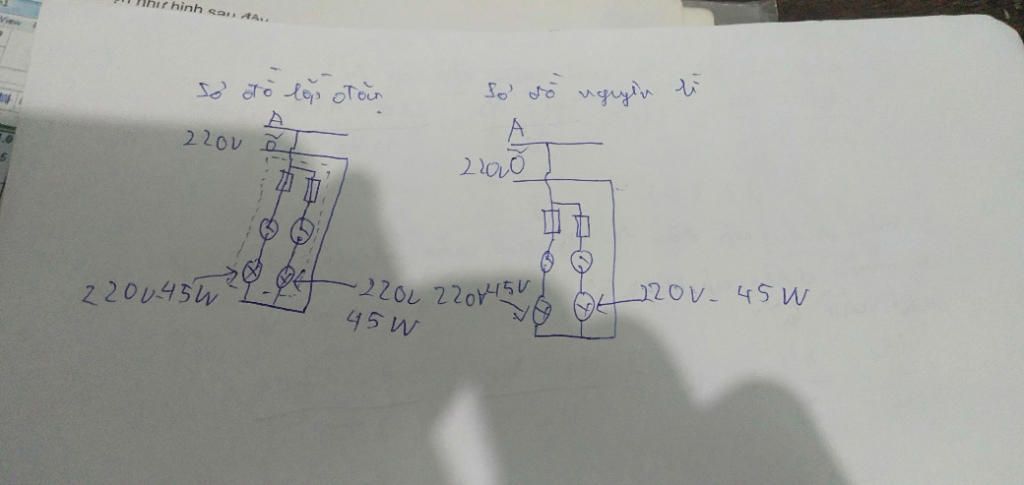 như hình sau đây
View
Sơ đồ lắp đặt
Sơ đồ nguyên lí
A
220V
O
A
220V
O
220V-45W
220V
45W
220V 45V
220V - 45W